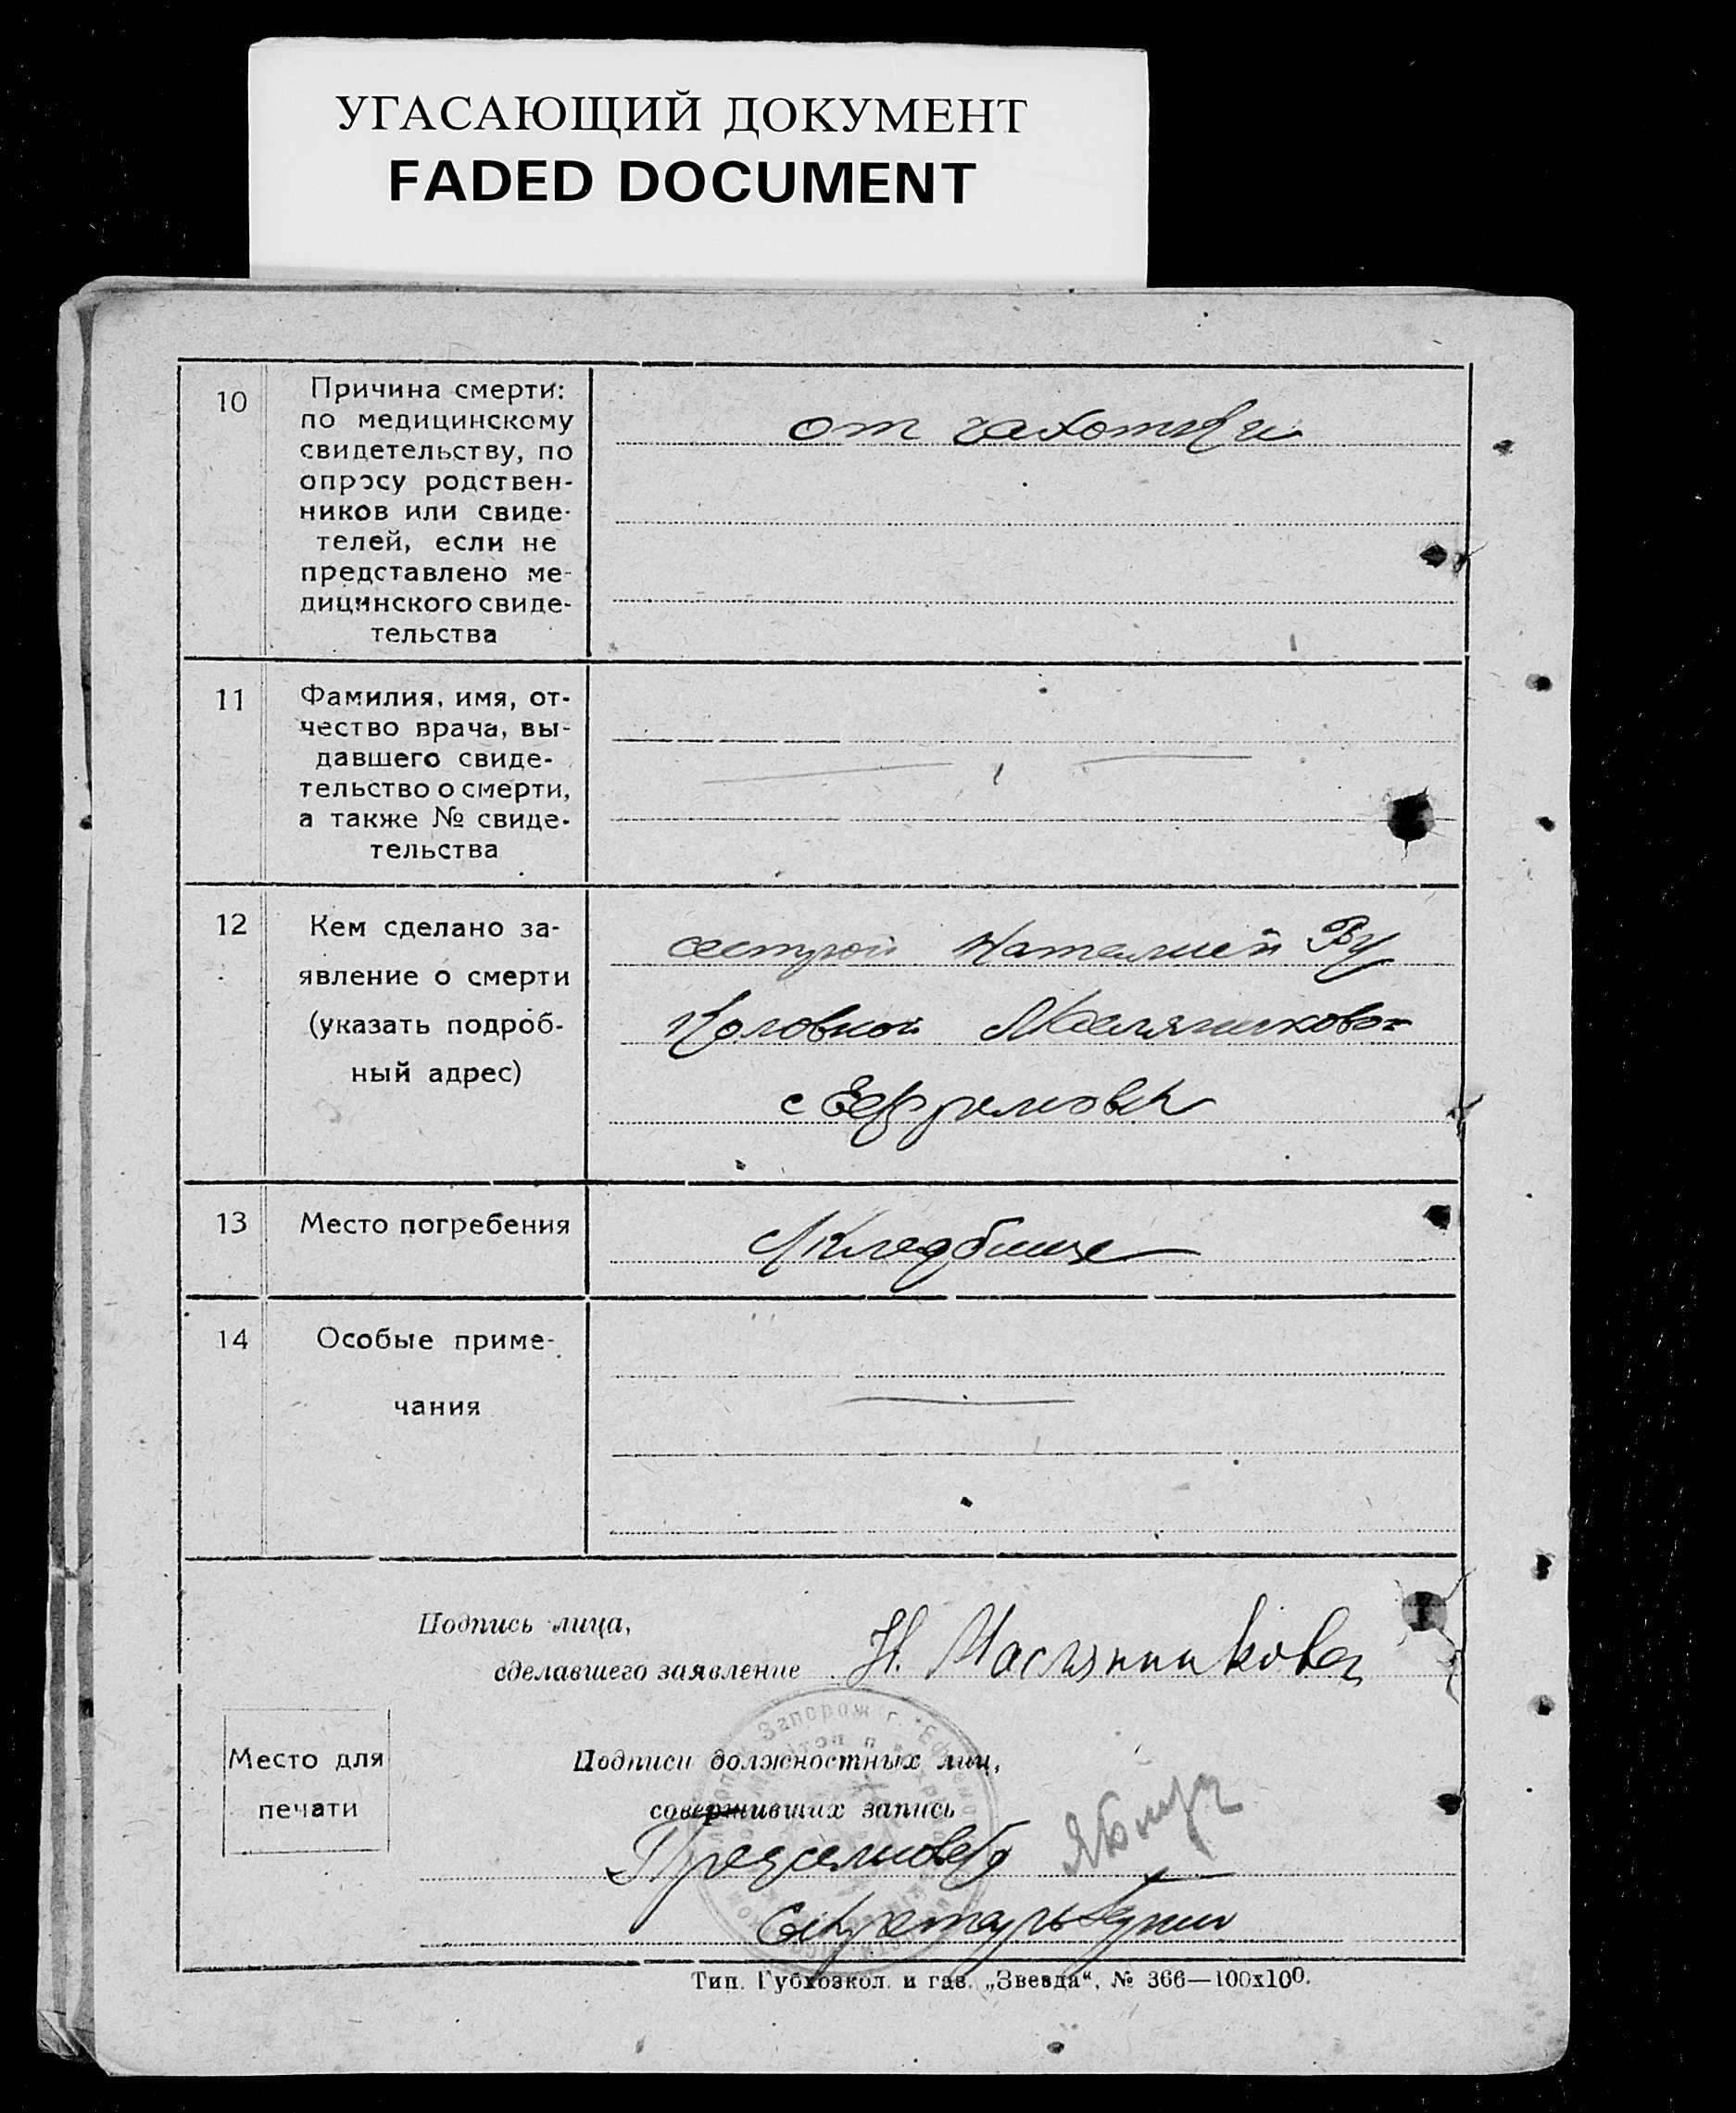 УГАСАЮЩИЙ ДОКУМЕНТ
FADED DOCUMENT
10
Причина смерти:
по медицинскому
свидетельству, по
опросу родствен-
ников или свиде-
телей, если не
представлено ме-
дицинского свиде-
тельства
от чахотки
11
Фамилия, имя, от-
чество врача, вы-
давшего свиде-
тельство о смерти,
а также № свиде-
тельства
12
Кем сделано за-
явление о смерти
(указать подроб-
ный адрес)
сестрой Наталией Ву
коловной Масляниковой
с Ефремовк
13
Место погребения
Кладбище
14
Особые приме-
чания
Подпись лица,
сделавшего заявление
Н. Маслянникова
Место для
печати
Подписи должностных лиц,
совершивших запись
Предсельсовета
Секретарь
Тип. Губхозкол. и газ. „Звезда“, № 366—100х100.